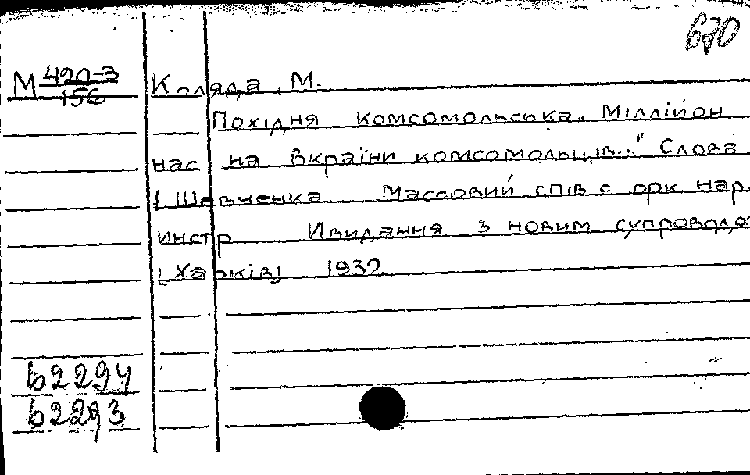 670
М 420-3 Коляда, М.
156
Похідня комсомольська. Мілліон
нас на Вкраїни комсомольців..." Слова
І Шевченка Массовий спів с орк нар.
инстр Ивидання з новим супроводо
[Харків] 1932
62294
62293